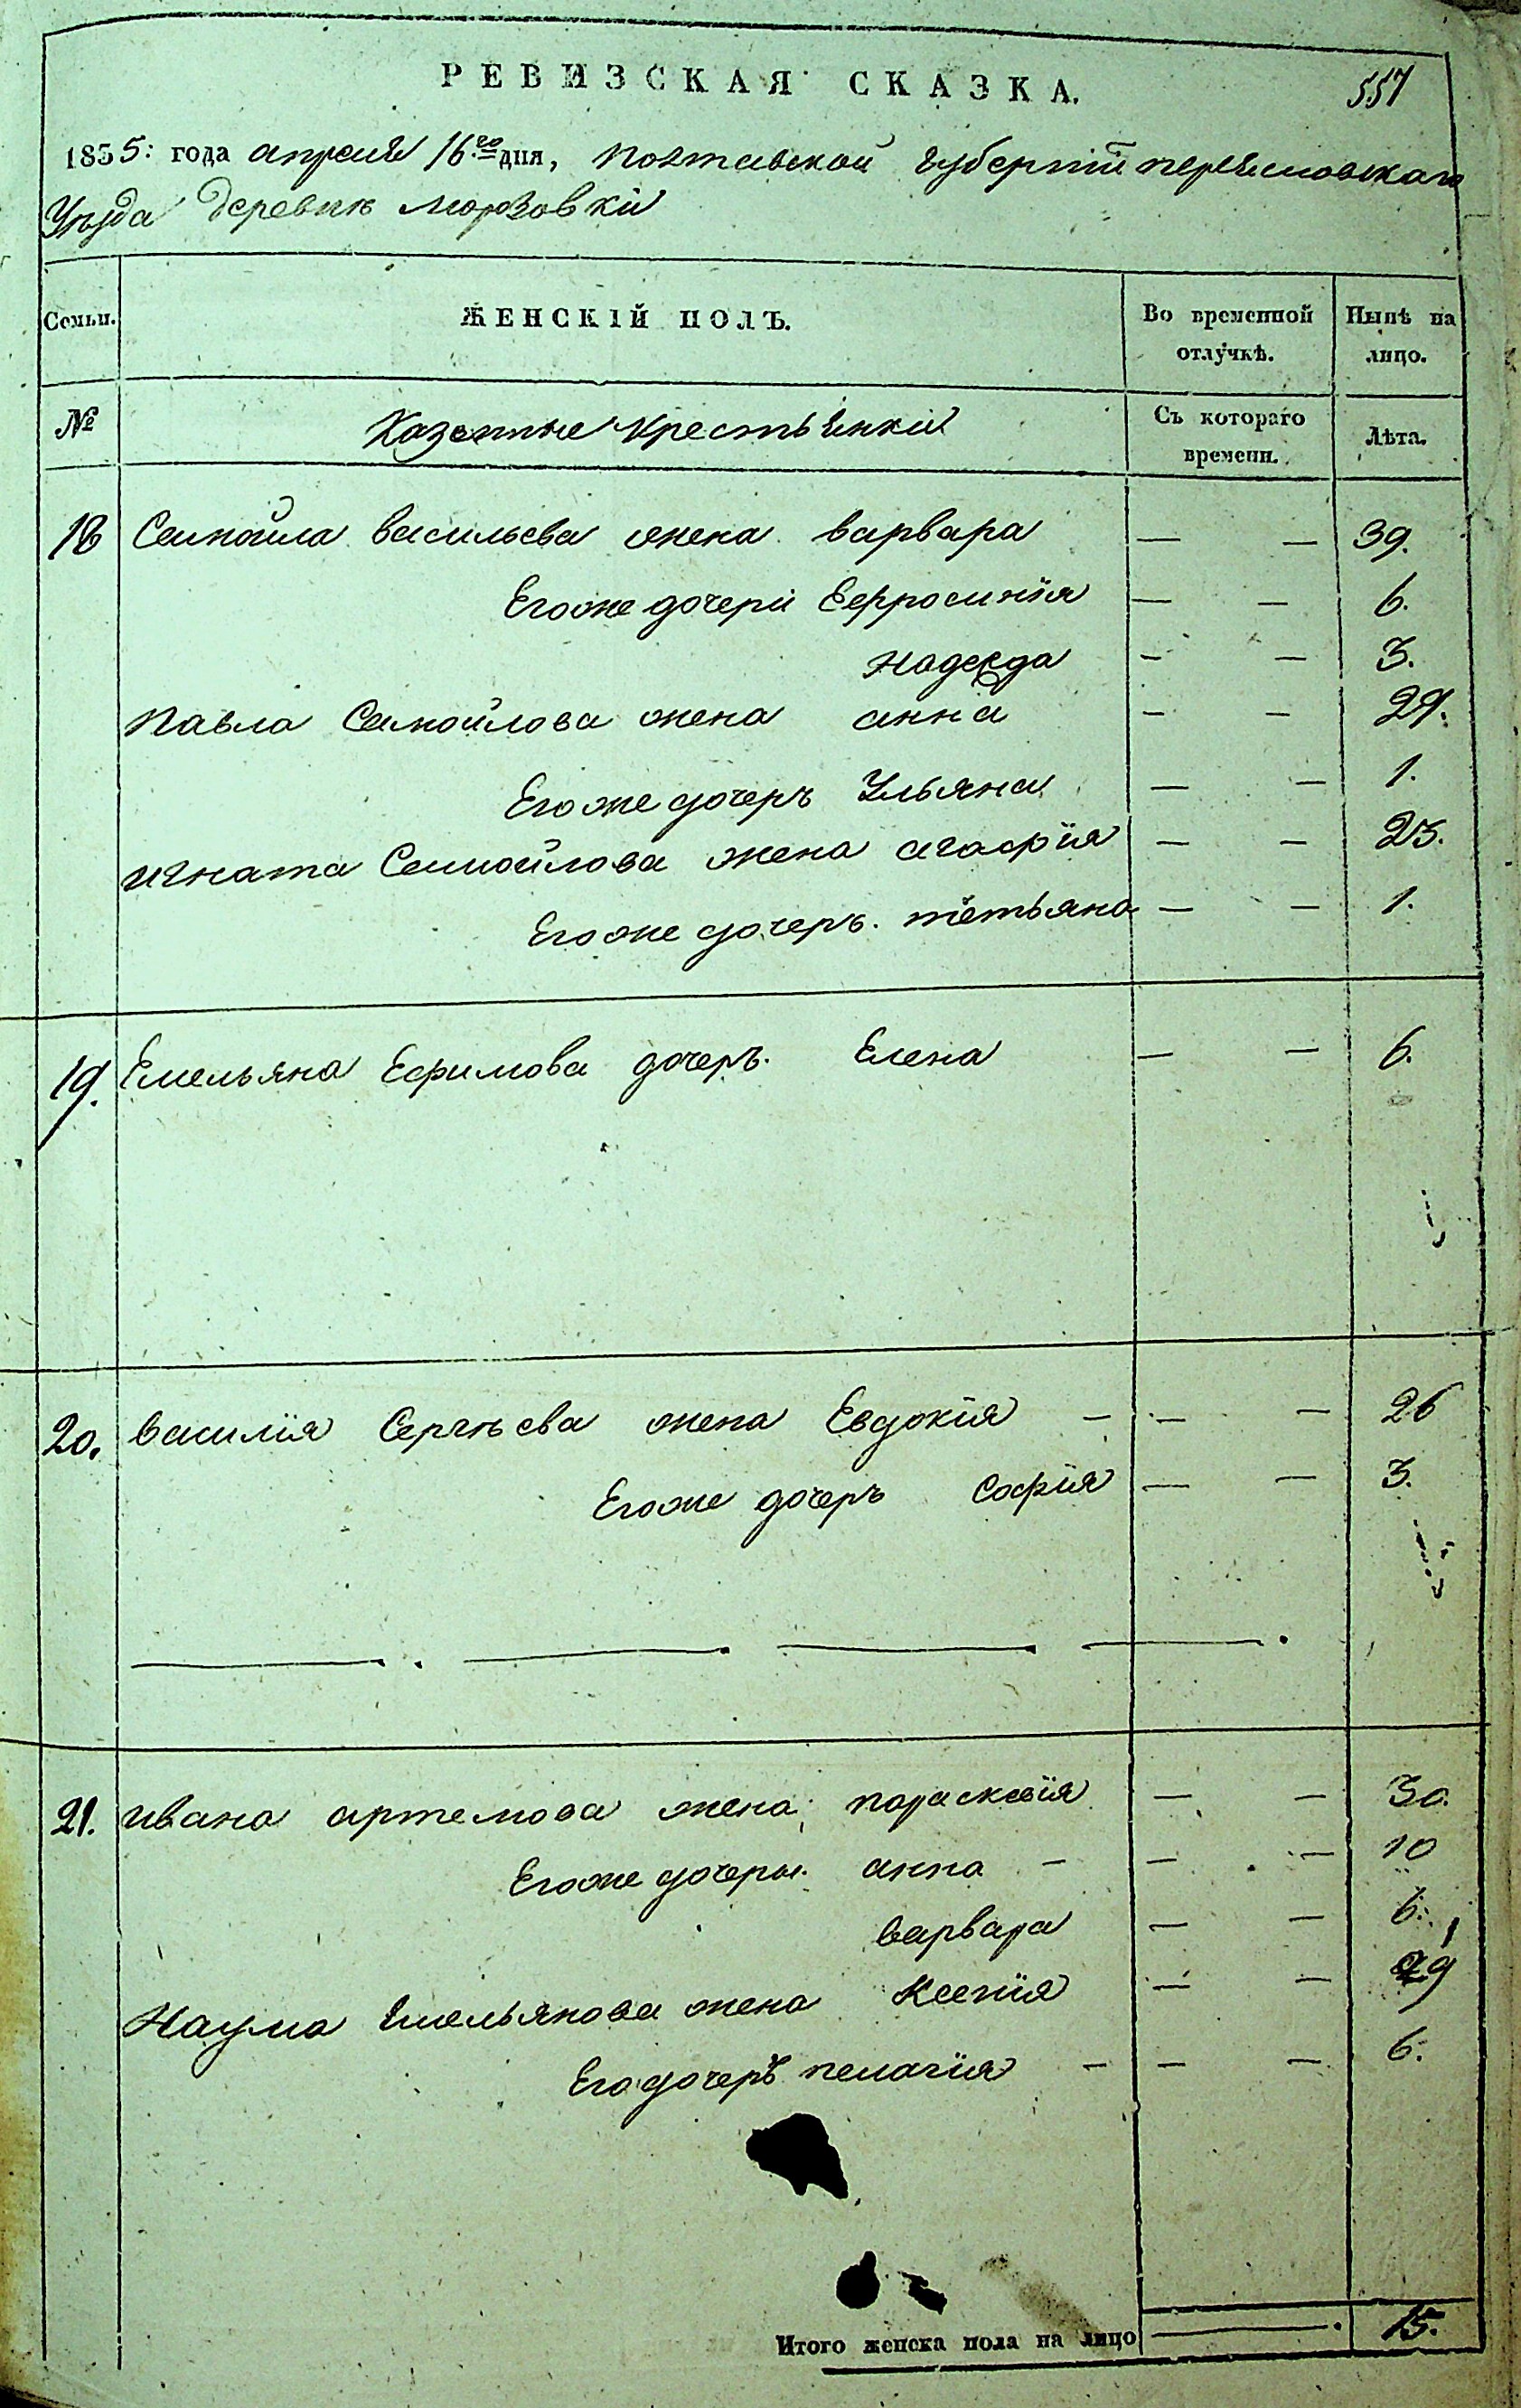 РЕВИЗСКАЯ СКАЗКА.
557
1835: года апреля 16го дня, Полтавской губерніи переяславскаго
Уѣзда Деревнѣ Морозовки
Семьи. ЖЕНСКІЙ ПОЛЪ. Во временной отлучкѣ. Нынѣ на лицо.
№ Казенные крестьянки Съ котораго времени. Лѣта.
18 Самойла васильева жена варвара — — 39.
Егоже дочери Ефросинія — — 6.
Надежда — — 3.
Павла Самойлова жена анна — — 29.
Егоже дочерь Ульяна — — 1.
игната Самойлова жена агафія — — 25.
Егоже дочерь. тетьяна — — 1.
19. Емельяна Ефимова дочерь. Елена — — 6.
20. василія Сергѣева жена Евдокія — — — 26
Егоже дочерь Софія — — 3.
21. ивана артемова жена парасковія — — 30.
Егоже дочеры. анна — — — 10
варвара — — 6.
Наума Емельянова жена Ксенія — — 29
Его дочерь пелагія — — — 6.
Итого женска пола на лицо — 15.